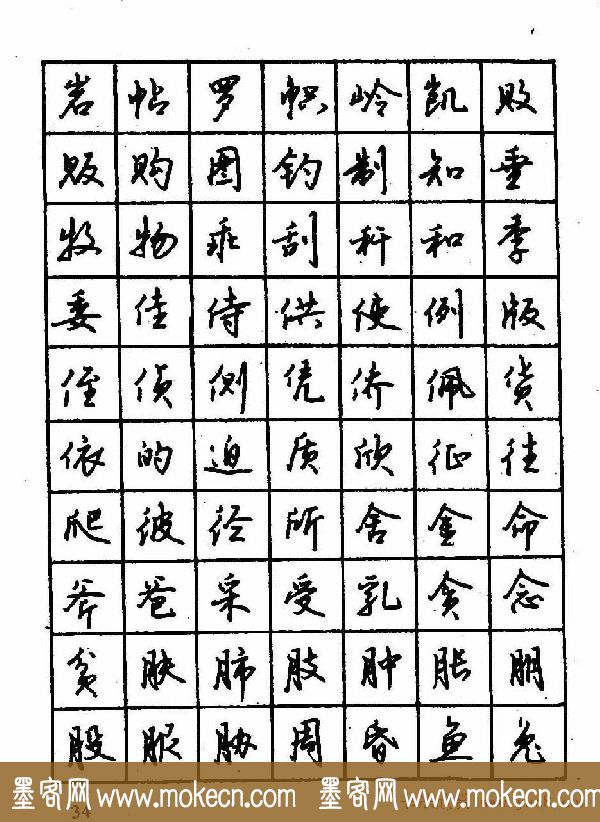 岩帖罗帜岭凯败
贩购图钓制知垂
牧物乖刮秆和季
委佳侍供使例版
侄侦侧凭侨佩货
依的迫质欣征往
爬彼径所舍金命
斧爸采受乳贪念
贫肤肺肢肿胀朋
股服胁周昏鱼兔
墨客网 www.mokecn.com 墨客网 www.mokecn.com
34